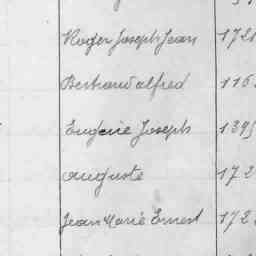 Roger Joseph Jean 172
Bertrand alfred 116
Eugène Joseph 1395
auguste 172
Jean Marie Ernest 172